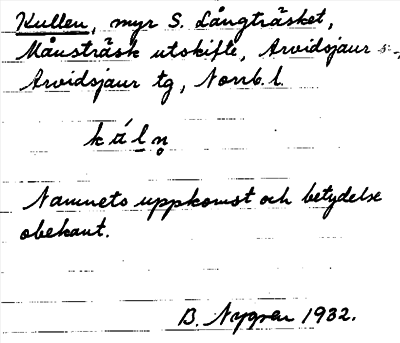 Kullen, myr S. Långträsket,
Månsträsk utskifte, Arvidsjaur s:n,
Arvidsjaur tg, Norrb. l.
Namnets uppkomst och betydelse
obekant.
B. Nygren 1932.